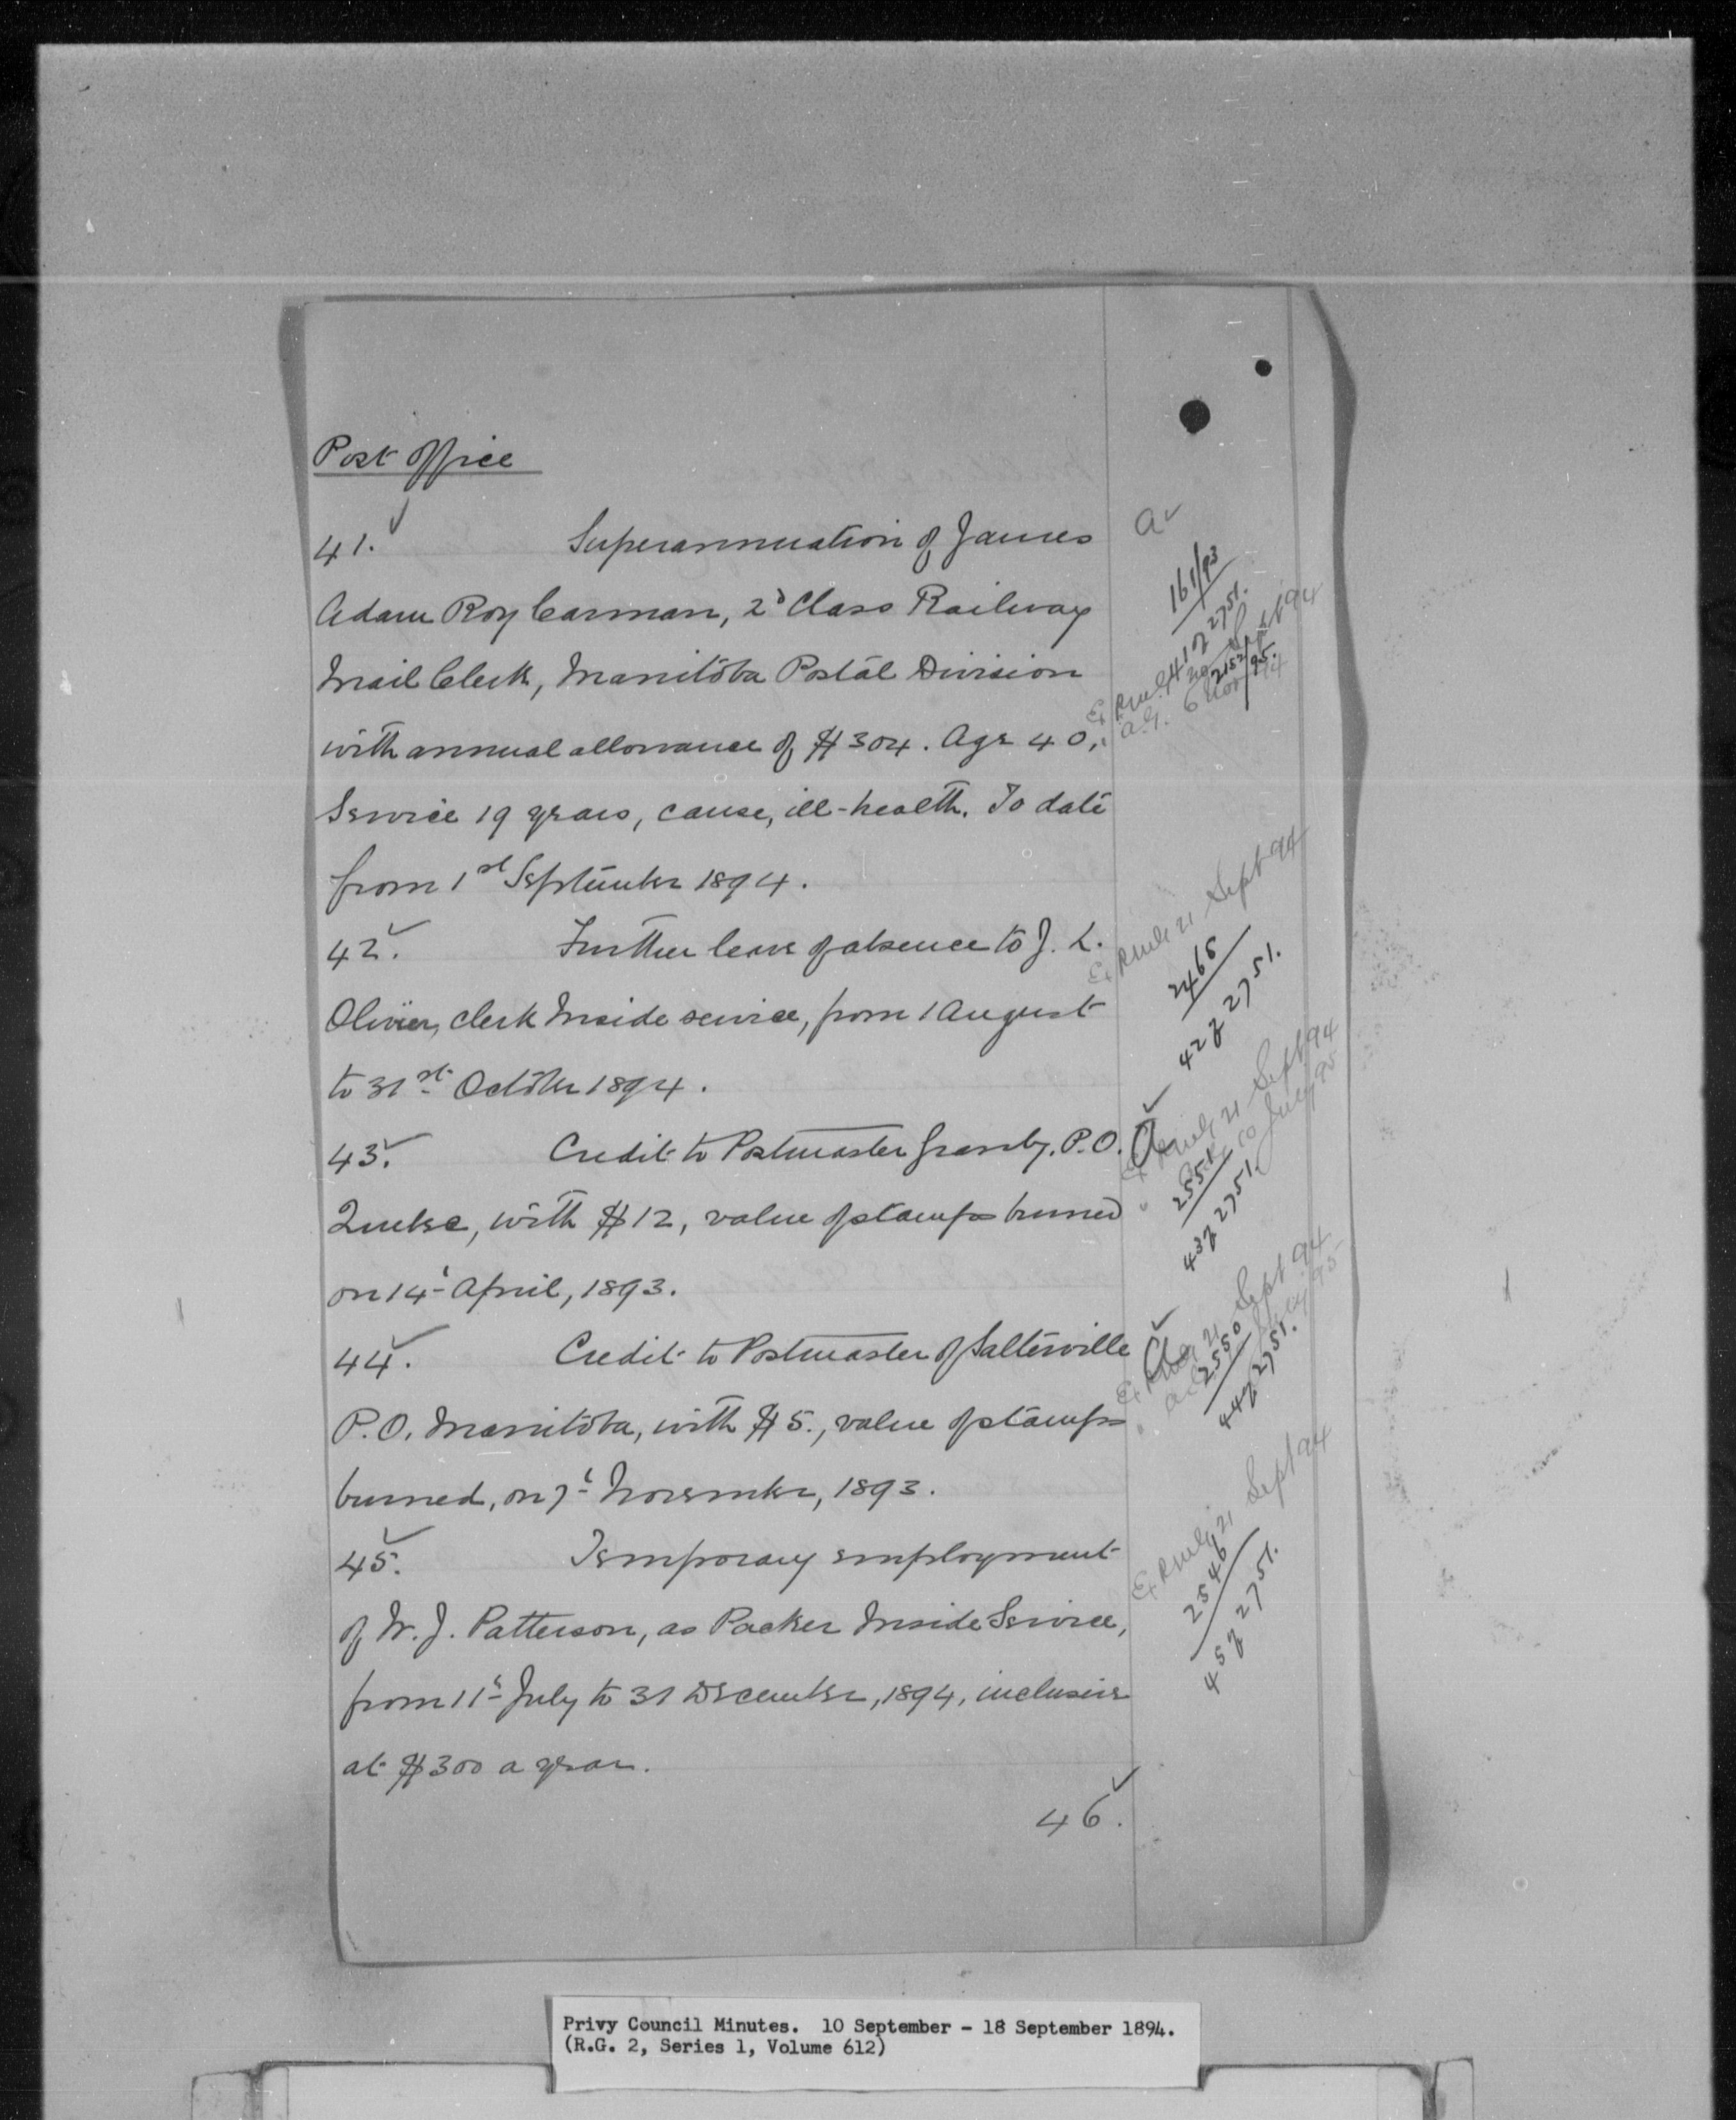 Post Office
41. Superannuation of James
Adam Roy Carman, 2d Class Railway
Mail Clerk, Manitoba Postal Division
with annual allowance of $304. Age 40,
Service 19 years, cause, ill-health. To date
from 1st September 1894.
42. Further leave of absence to J. L.
Olivier, clerk Inside service, from 1 August
to 31st October 1894.
43. Credit to Postmaster Granby, P.O.
Quebec, with $12, value of stamps burned
on 14t April, 1893.
44. Credit to Postmaster of Saltersville
P.O. Manitoba, with $5., value of stamps
burned, on 7t November, 1893.
45. Temporary employment
of W. J. Patterson, as Packer Inside Service,
from 11t July to 31 December, 1894, inclusive
at $300 a year.
46.
a
161/93
41 of 2751.
2152/95.
21 Sept 94
2465
42 of 2751.
21 Sept 94
2551
43 of 2751.
21 Sept 94
2550
44 of 2751.
21 Sept 94
2546
45 of 2751.
Privy Council Minutes. 10 September - 18 September 1894.
(R.G. 2, Series 1, Volume 612)